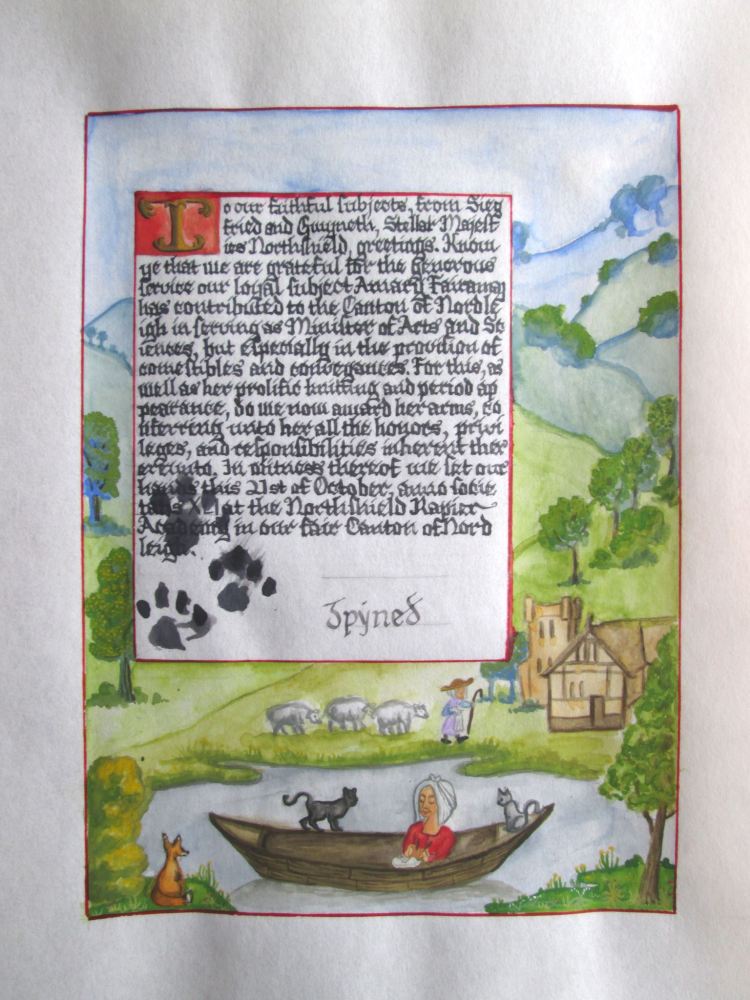 To our faithful subjects, from Sieg
fried and Gwyneth, Stellar Majest
ies Northshield, greetings. Know
ye that we are grateful for the generous
service our loyal subject Amaryl Fairamay
has contributed to the Canton of Nordle
igh in serving as Minister of Arts and Sc
iences, but especially in the provision of
comestibles and conveyances. For this, as
well as her prolific knitting and period ap
pearance, do we now award her arms, co
nferring unto her all the honors, privi
leges, and responsibilities inherent ther
eriunto. In witness thereof we set our
hands this 21st of October, anno socie
tatis XLI at the Northshield Rapier
Academy in our fair Canton of Nord
leigh.
Spyned